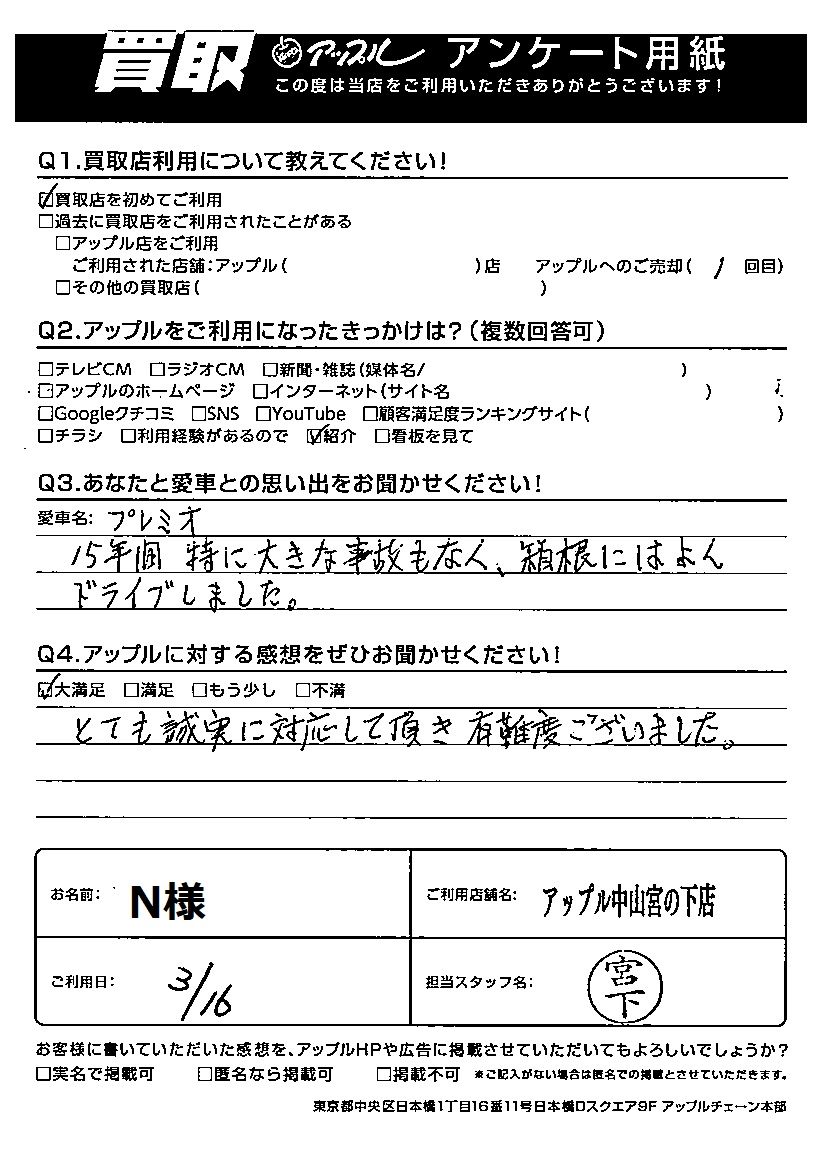 買取 アップル アンケート用紙
この度は当店をご利用いただきありがとうございます!
Q1.買取店利用について教えてください!
☑買取店を初めてご利用
□過去に買取店をご利用されたことがある
□アップル店をご利用
ご利用された店舗:アップル( )店 アップルへのご売却( 1 回目)
□その他の買取店( )
Q2.アップルをご利用になったきっかけは?(複数回答可)
□テレビCM □ラジオCM □新聞・雑誌(媒体名/ )
□アップルのホームページ □インターネット(サイト名 )
□Googleクチコミ □SNS □YouTube □顧客満足度ランキングサイト( )
□チラシ □利用経験があるので ☑紹介 □看板を見て
Q3.あなたと愛車との思い出をお聞かせください!
愛車名: プレミオ
15年間 特に大きな事故もなく、箱根にはよく
ドライブしました。
Q4.アップルに対する感想をぜひお聞かせください!
☑大満足 □満足 □もう少し □不満
とても誠実に対応して頂き有難度ございました。
お名前: N様 ご利用店舗名: アップル中山宮の下店
ご利用日: 3/16 担当スタッフ名: 宮下
お客様に書いていただいた感想を、アップルHPや広告に掲載させていただいてもよろしいでしょうか?
□実名で掲載可 □匿名なら掲載可 □掲載不可 ※ご記入がない場合は匿名での掲載とさせていただきます。
東京都中央区日本橋1丁目16番11号日本橋Dスクエア9F アップルチェーン本部